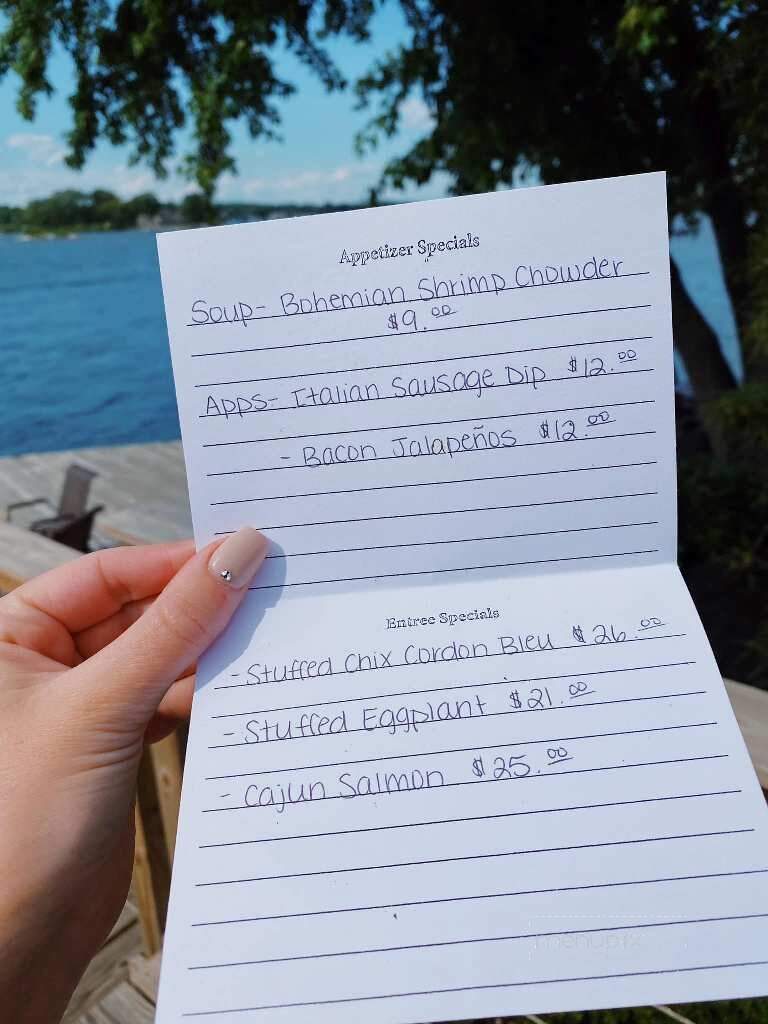 Appetizer Specials
Soup- Bohemian Shrimp Chowder
$9.00
Apps- Italian Sausage Dip $12.00
- Bacon Jalapeños $12.00
Entree Specials
- Stuffed Chix Cordon Bleu $26.00
- Stuffed Eggplant $21.00
- Cajun Salmon $25.00
menupix